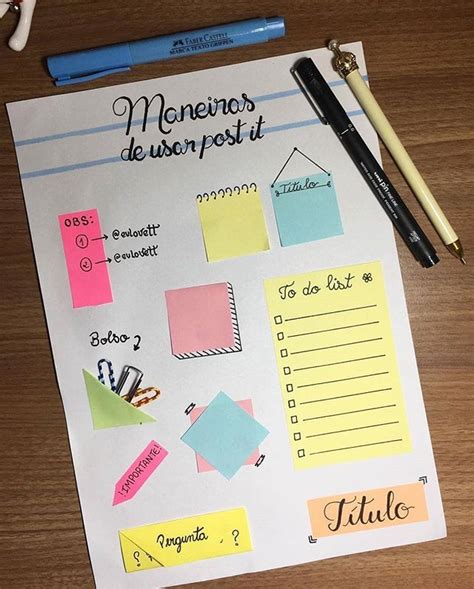 FABER-CASTELL
MARCA TEXTO GRIFPEN
Maneiras
de usar post it
OBS:
1 → @eulovett
2 → @eulovett
Título
To do list
Bolso
¡IMPORTANTE!
? Pergunta ?
Título
uni pin